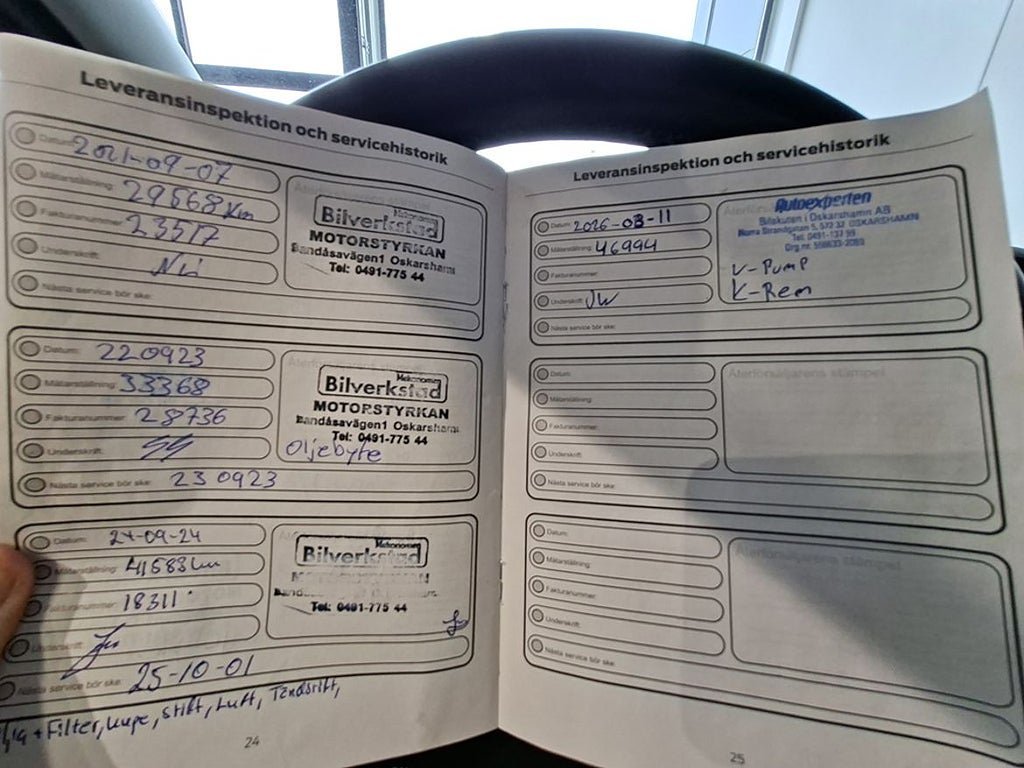 Leveransinspektion och servicehistorik
Datum: 2021-09-07
Mätarställning: 29568 km
Fakturanummer: 23517
Underskrift:
Nästa service bör ske:
Mekonomen
Bilverkstad
MOTORSTYRKAN
Bandåsavägen1 Oskarshamn
Tel: 0491-775 44
Datum: 220923
Mätarställning: 33368
Fakturanummer: 28736
Underskrift:
Nästa service bör ske: 230923
Mekonomen
Bilverkstad
MOTORSTYRKAN
Bandåsavägen1 Oskarshamn
Tel: 0491-775 44
Oljebyte
Datum: 24-09-24
Mätarställning: 41583 km
Fakturanummer: 18311
Underskrift:
Nästa service bör ske: 25-10-01
Mekonomen
Bilverkstad
MOTORSTYRKAN
Tel: 0491-775 44
+ Filter, kupe, stift, Luft, Tändstift,
24
Leveransinspektion och servicehistorik
Datum: 2026-03-11
Mätarställning: 46994
Fakturanummer:
Underskrift: JW
Nästa service bör ske:
Autoexperten
Bilskutan i Oskarshamn AB
Norra Strandgatan 5, 572 32 OSKARSHAMN
Tel. 0491-137 99
Org.nr.
V-Pump
K-Rem
Datum:
Mätarställning:
Fakturanummer:
Underskrift:
Nästa service bör ske:
Återförsäljarens stämpel
Datum:
Mätarställning:
Fakturanummer:
Underskrift:
Nästa service bör ske:
Återförsäljarens stämpel
25